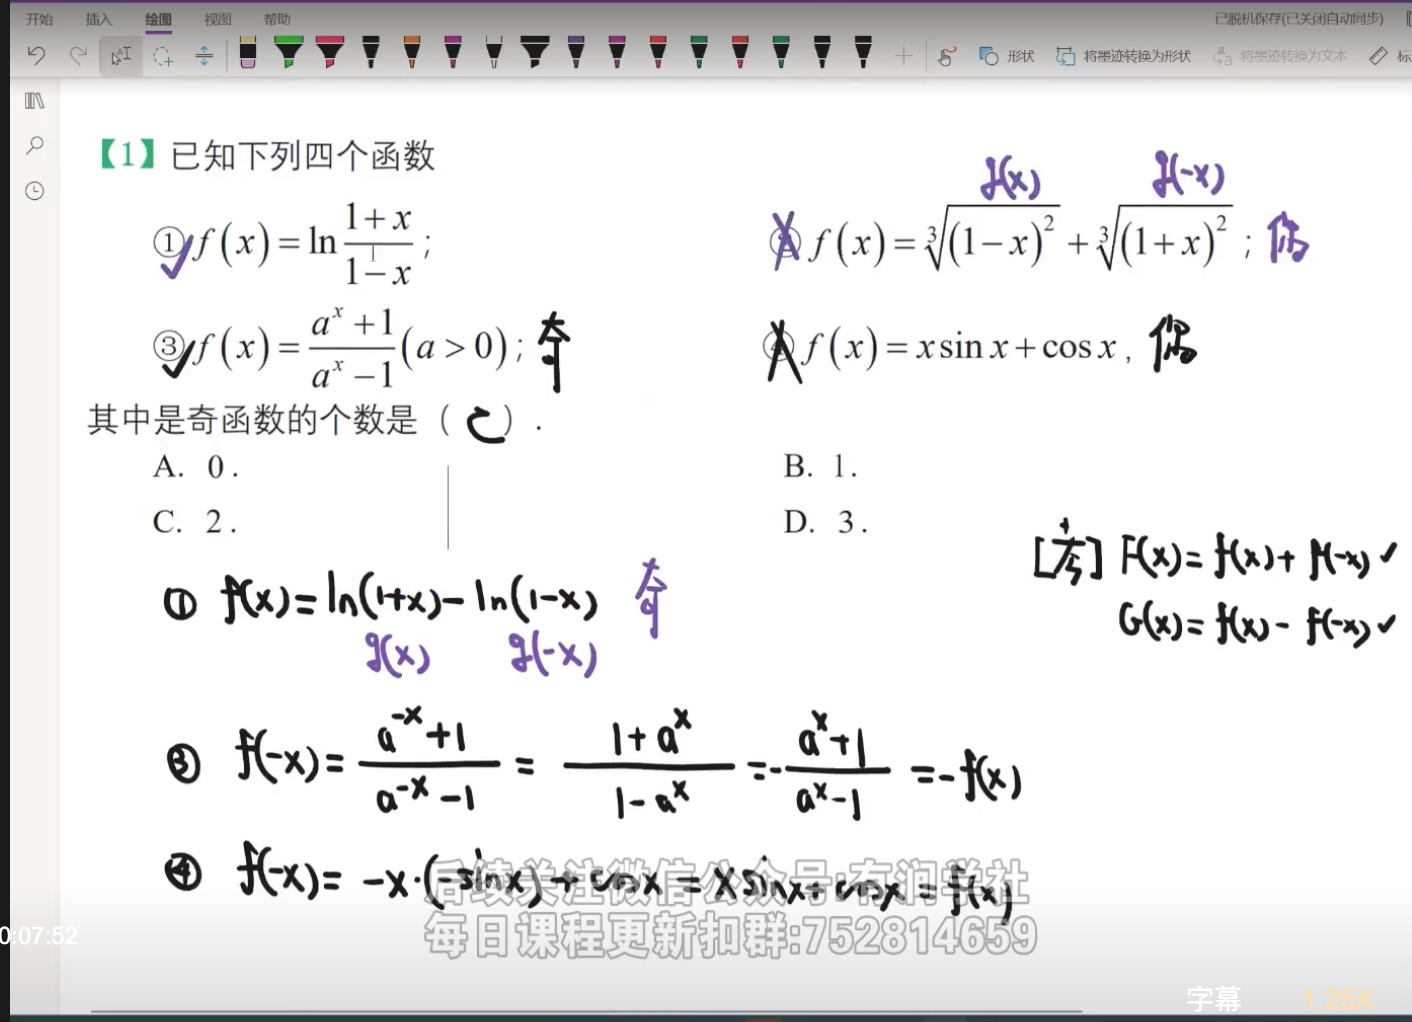 开始 插入 绘图 视图 帮助 已脱机保存(已关闭自动同步)
形状 将墨迹转换为形状 将墨迹转换为文本
【1】已知下列四个函数
g(x) g(-x)
① f(x)=ln (1+x)/(1−x) ; ② f(x)=∛(1−x)² + ∛(1+x)² ; 偶
③ f(x)= (aˣ+1)/(aˣ−1) (a>0) ; 奇 ④ f(x)=x sin x+cos x , 偶
其中是奇函数的个数是（ C ）.
A. 0. B. 1.
C. 2. D. 3.
F(x)=f(x)+f(-x) ✓
G(x)=f(x)-f(-x) ✓
① f(x)=ln(1+x)-ln(1-x) 奇
g(x) g(-x)
③ f(-x)= (a⁻ˣ+1)/(a⁻ˣ-1) = (1+aˣ)/(1-aˣ) =- (aˣ+1)/(aˣ-1) =-f(x)
④ f(-x)= -x·(-sinx)+cosx = xsinx+cosx = f(x)
后续关注微信公众号:有润学社
每日课程更新扣群:752814659
0:07:52
字幕 1.25X